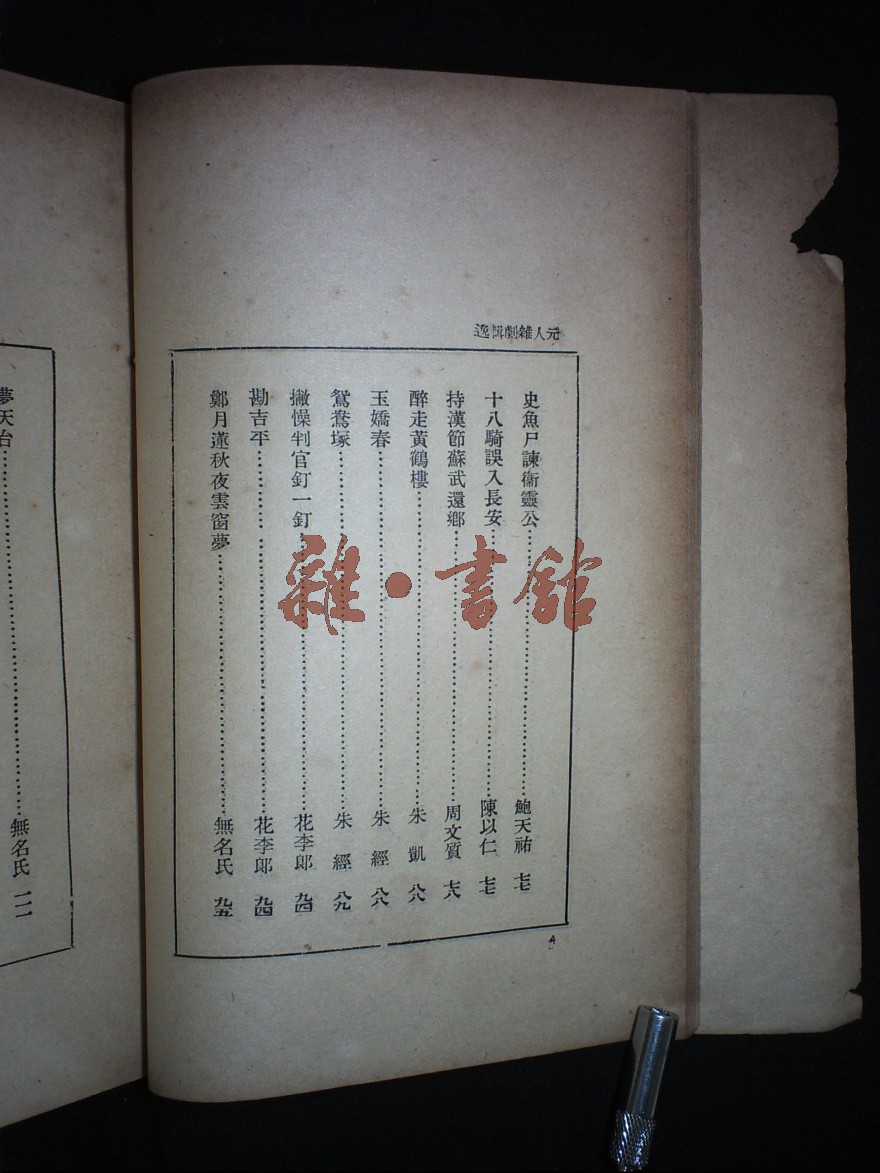 元人雜劇輯逸
史魚尸諫衞靈公……鮑天祐 七七
十八騎誤入長安……陳以仁 七七
持漢節蘇武還鄉……周文質 七八
醉走黃鶴樓……朱凱 八八
玉嬌春……朱經 八八
鴛鴦塚……朱經 八九
撇懆判官釘一釘……花李郞 九四
勘吉平……花李郞 九四
鄭月蓮秋夜雲窗夢……無名氏 九五
4
夢天台……無名氏 一一一
雜·書館